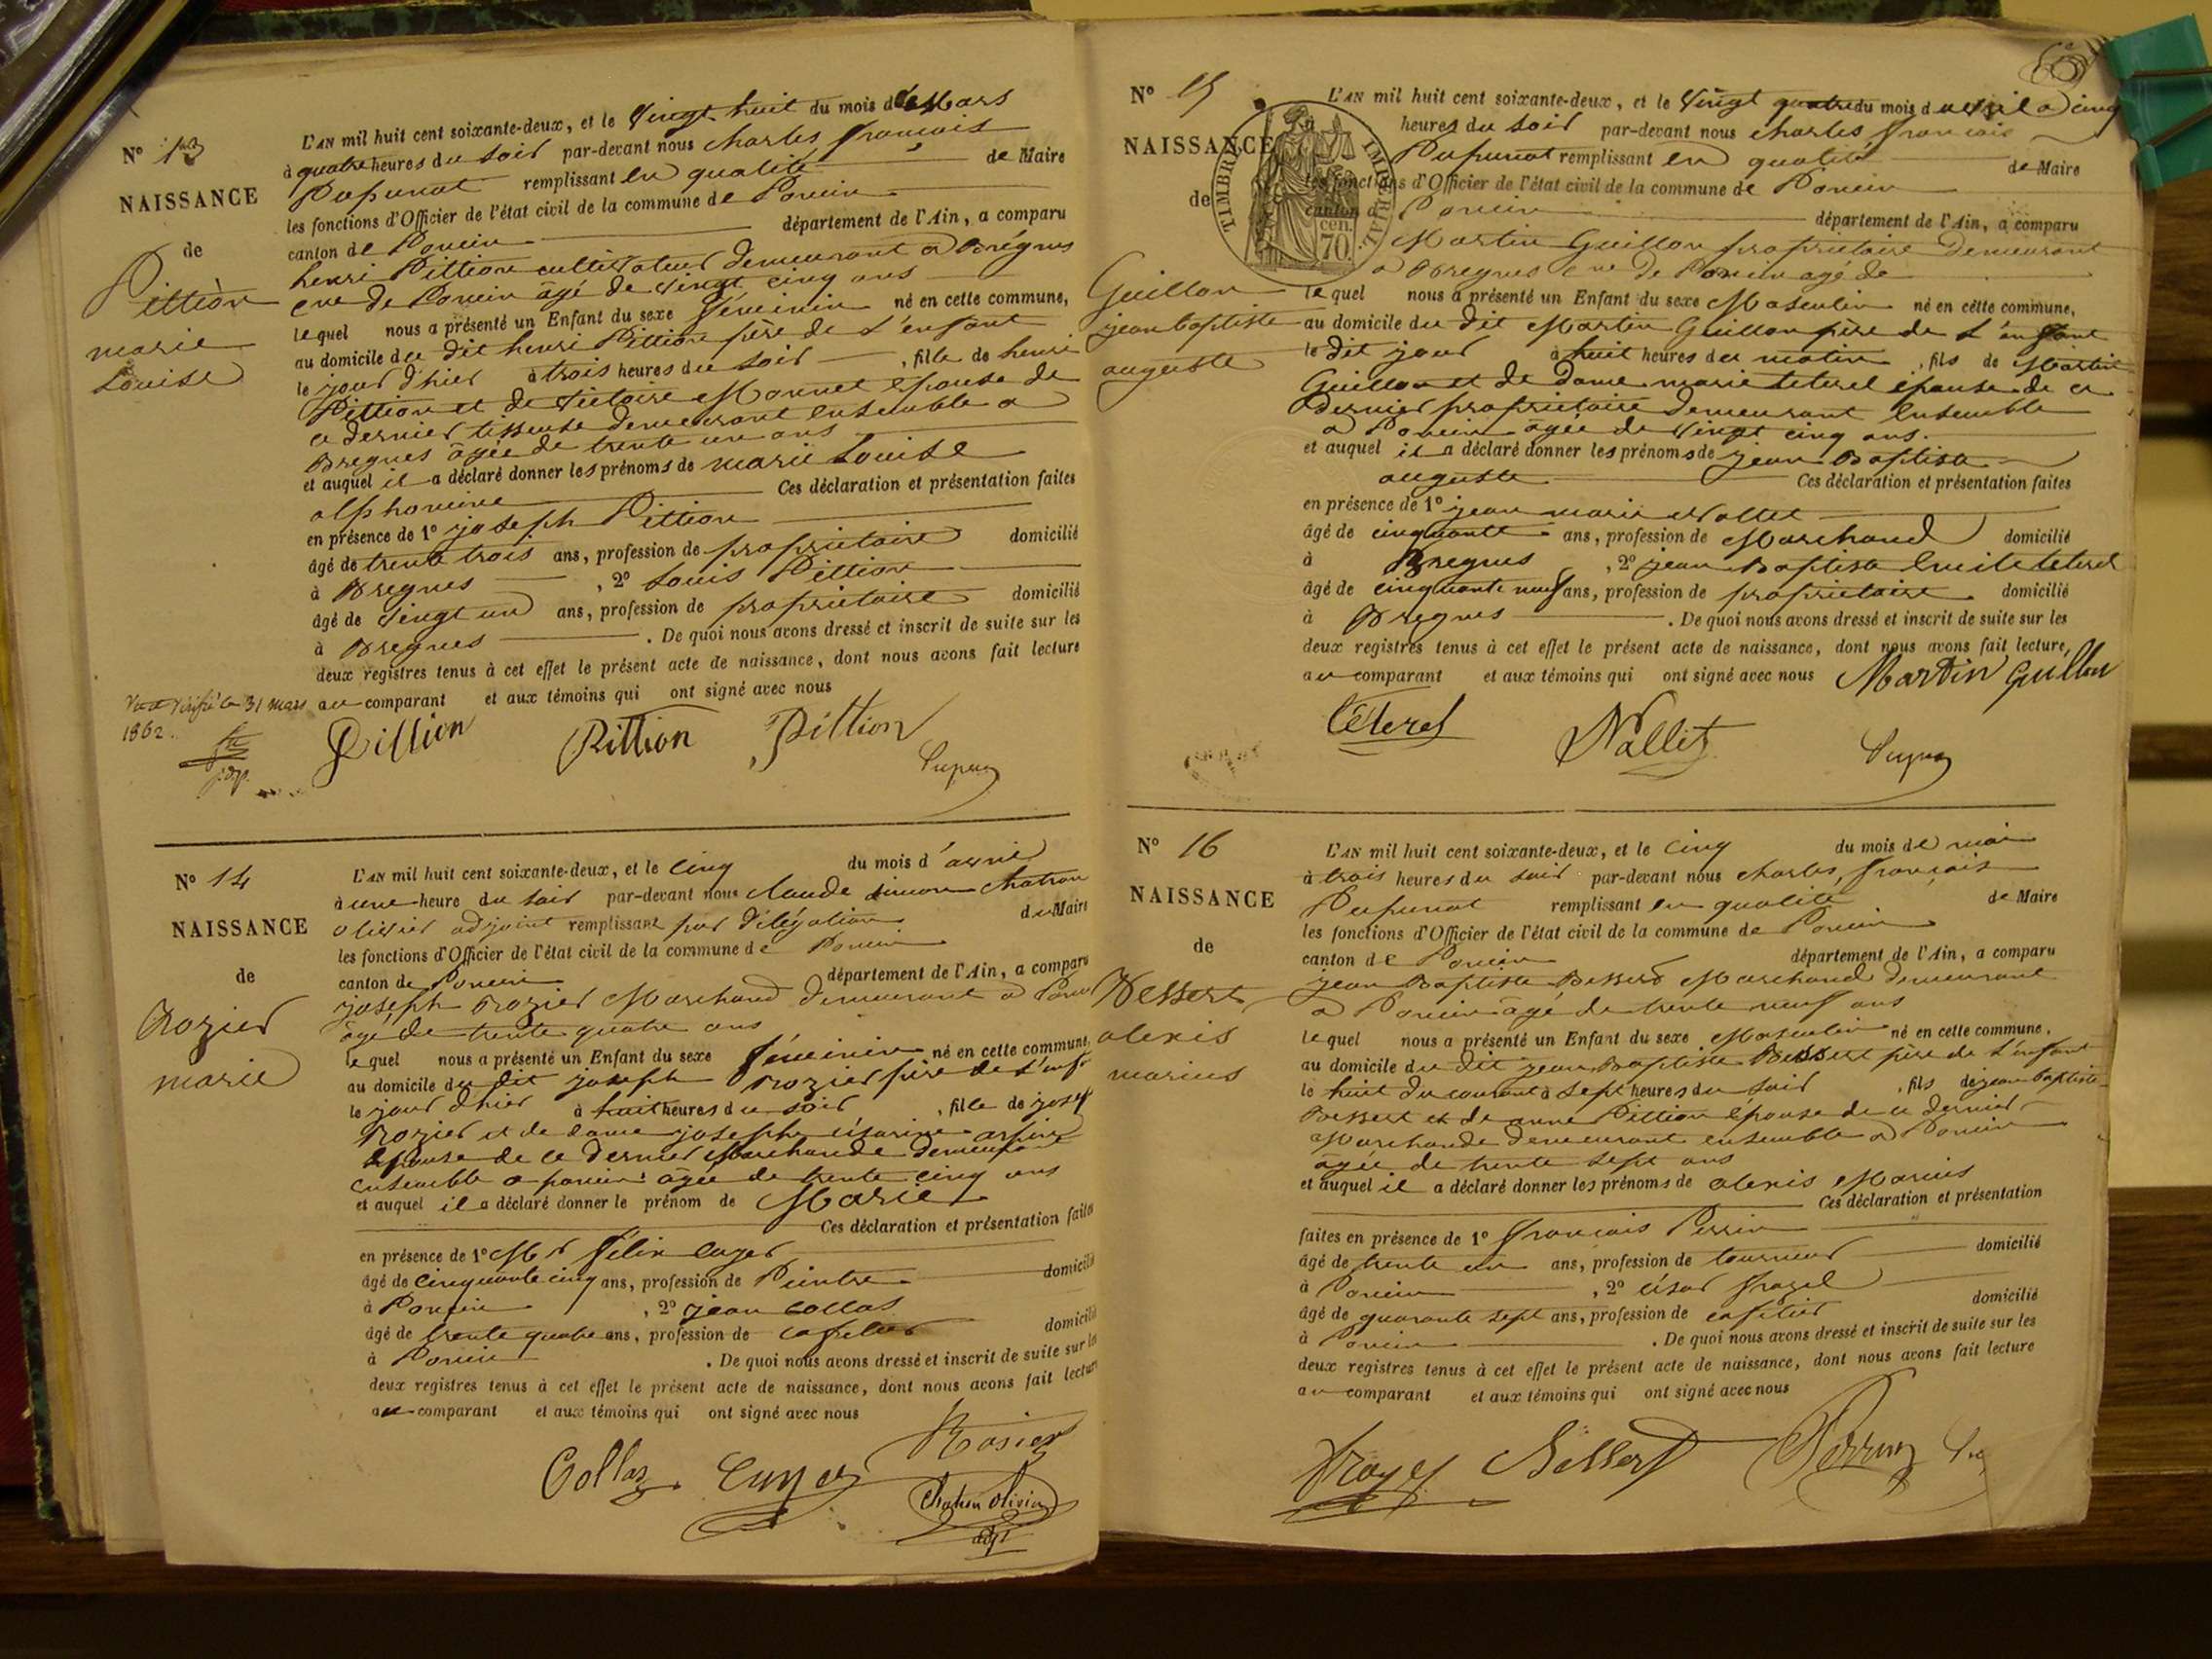 N° 13
NAISSANCE
de
Pittion
marie
Louise
L'AN mil huit cent soixante-deux, et le vingt huit du mois de Mars
à quatre heures du soir par-devant nous Charles François
remplissant en qualité de Maire
les fonctions d'Officier de l'état civil de la commune de Poncin
canton de Poncin département de l'Ain, a comparu
henri Pittion cultivateur demeurant à Bregnes
cne de Poncin âgé de vingt cinq ans
lequel nous a présenté un Enfant du sexe féminin né en cette commune,
au domicile du dit henri Pittion père de l'enfant
le jour d'hier à trois heures du soir, fille de henri
Pittion et de victoire Monnet épouse de
ce dernier tisseuse demeurant ensemble a
Bregnes âgée de trente un ans
et auquel il a déclaré donner les prénoms de marie Louise
alphonsine Ces déclaration et présentation faites
en présence de 1° joseph Pittion
âgé de trente trois ans, profession de propriétaire domicilié
à Bregnes, 2° Louis Pittion
âgé de vingt un ans, profession de propriétaire domicilié
à Bregnes. De quoi nous avons dressé et inscrit de suite sur les
deux registres tenus à cet effet le présent acte de naissance, dont nous avons fait lecture
au comparant et aux témoins qui ont signé avec nous
Vu et vérifié le 31 mars
1862.
Pittion Pittion Pittion
N° 14
NAISSANCE
de
Rozier
marie
L'AN mil huit cent soixante-deux, et le cinq du mois d'avril
à une heure du soir par-devant nous claude simon chatron
olivier adjoint remplissant par délégation du Maire
les fonctions d'Officier de l'état civil de la commune de Poncin
canton de Poncin département de l'Ain, a comparu
joseph Rozier Marchand demeurant a Poncin
âgé de trente quatre ans
lequel nous a présenté un Enfant du sexe féminin né en cette commune,
au domicile du dit joseph Rozier père de l'enft
le jour d'hier à huit heures du soir, fille de joseph
Rozier et de dame josephe césarine
épouse de ce dernier Marchande demeurant
ensemble a poncin âgée de trente cinq ans
et auquel il a déclaré donner le prénom de Marie
Ces déclaration et présentation faites
en présence de 1° Mr félix
âgé de cinquante cinq ans, profession de Peintre domicilié
à Poncin, 2° jean collas
âgé de trente quatre ans, profession de cafetier domicilié
à Poncin. De quoi nous avons dressé et inscrit de suite sur les
deux registres tenus à cet effet le présent acte de naissance, dont nous avons fait lecture
au comparant et aux témoins qui ont signé avec nous
Rosier
Collas
Chatron Olivier
adjt
N° 15
NAISSANCE
de
Guillon
jean baptiste
auguste
TIMBRE IMPERIAL
70 cen.
L'AN mil huit cent soixante-deux, et le vingt quatre du mois d'avril à cinq
heures du soir par-devant nous charles françois
remplissant en qualité de Maire
les fonctions d'Officier de l'état civil de la commune de Poncin
canton de Poncin département de l'Ain, a comparu
Martin Guillon propriétaire demeurant
a Bregnes cne de Poncin agé de
lequel nous a présenté un Enfant du sexe Masculin né en cette commune,
au domicile du dit Martin Guillon père de l'enfant
le dit jour à huit heures du matin, fils de Martin
Guillon et de dame marie teterel épouse de ce
dernier propriétaire demeurant ensemble
a Poncin agée de vingt cinq ans.
et auquel il a déclaré donner les prénoms de jean Baptiste
auguste Ces déclaration et présentation faites
en présence de 1° jean marie Nallet
âgé de cinquante ans, profession de Marchand domicilié
à Bregnes, 2° jean Baptiste teterel
âgé de cinquante neuf ans, profession de propriétaire domicilié
à Bregnes. De quoi nous avons dressé et inscrit de suite sur les
deux registres tenus à cet effet le présent acte de naissance, dont nous avons fait lecture,
au comparant et aux témoins qui ont signé avec nous Martin Guillon
Téterel Nallet
N° 16
NAISSANCE
de
Bessert
alexis
marius
L'AN mil huit cent soixante-deux, et le cinq du mois de mai
à trois heures du soir par-devant nous charles, françois
remplissant en qualité de Maire
les fonctions d'Officier de l'état civil de la commune de Poncin
canton de Poncin département de l'Ain, a comparu
jean Baptiste Bessert Marchand demeurant
a Poncin âgé de trente neuf ans
lequel nous a présenté un Enfant du sexe Masculin né en cette commune,
au domicile du dit jean Baptiste Bessert père de l'enfant
le huit du courant à sept heures du soir, fils de jean baptiste
Bessert et de anne Pittion épouse de ce dernier
Marchande demeurant ensemble a Poncin
âgée de trente sept ans
et auquel il a déclaré donner les prénoms de alexis Marius
Ces déclaration et présentation
faites en présence de 1° françois Perrin
âgé de trente un ans, profession de tourneur domicilié
à Poncin, 2° césar
âgé de quarante sept ans, profession de cafetier domicilié
à Poncin. De quoi nous avons dressé et inscrit de suite sur les
deux registres tenus à cet effet le présent acte de naissance, dont nous avons fait lecture
au comparant et aux témoins qui ont signé avec nous
Bessert Perrin